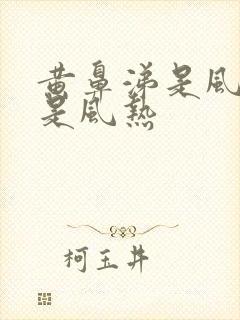 黄鼻涕是風
是風熱
柯玉井